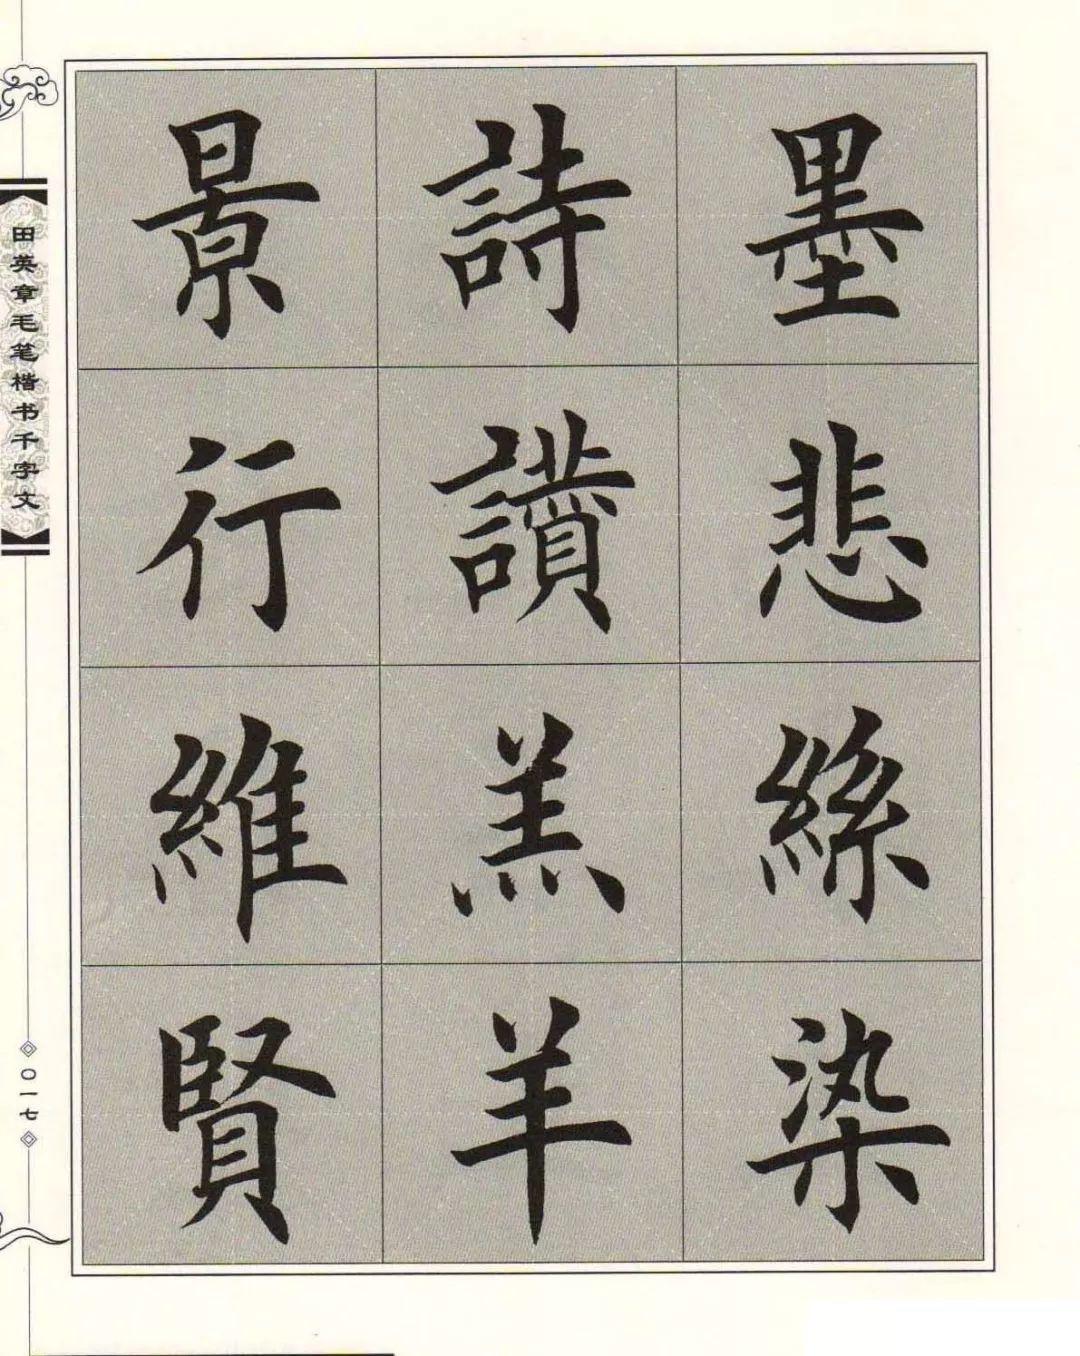 墨悲絲染
詩讚羔羊
景行維賢
田英章毛笔楷书千字文
〇一七